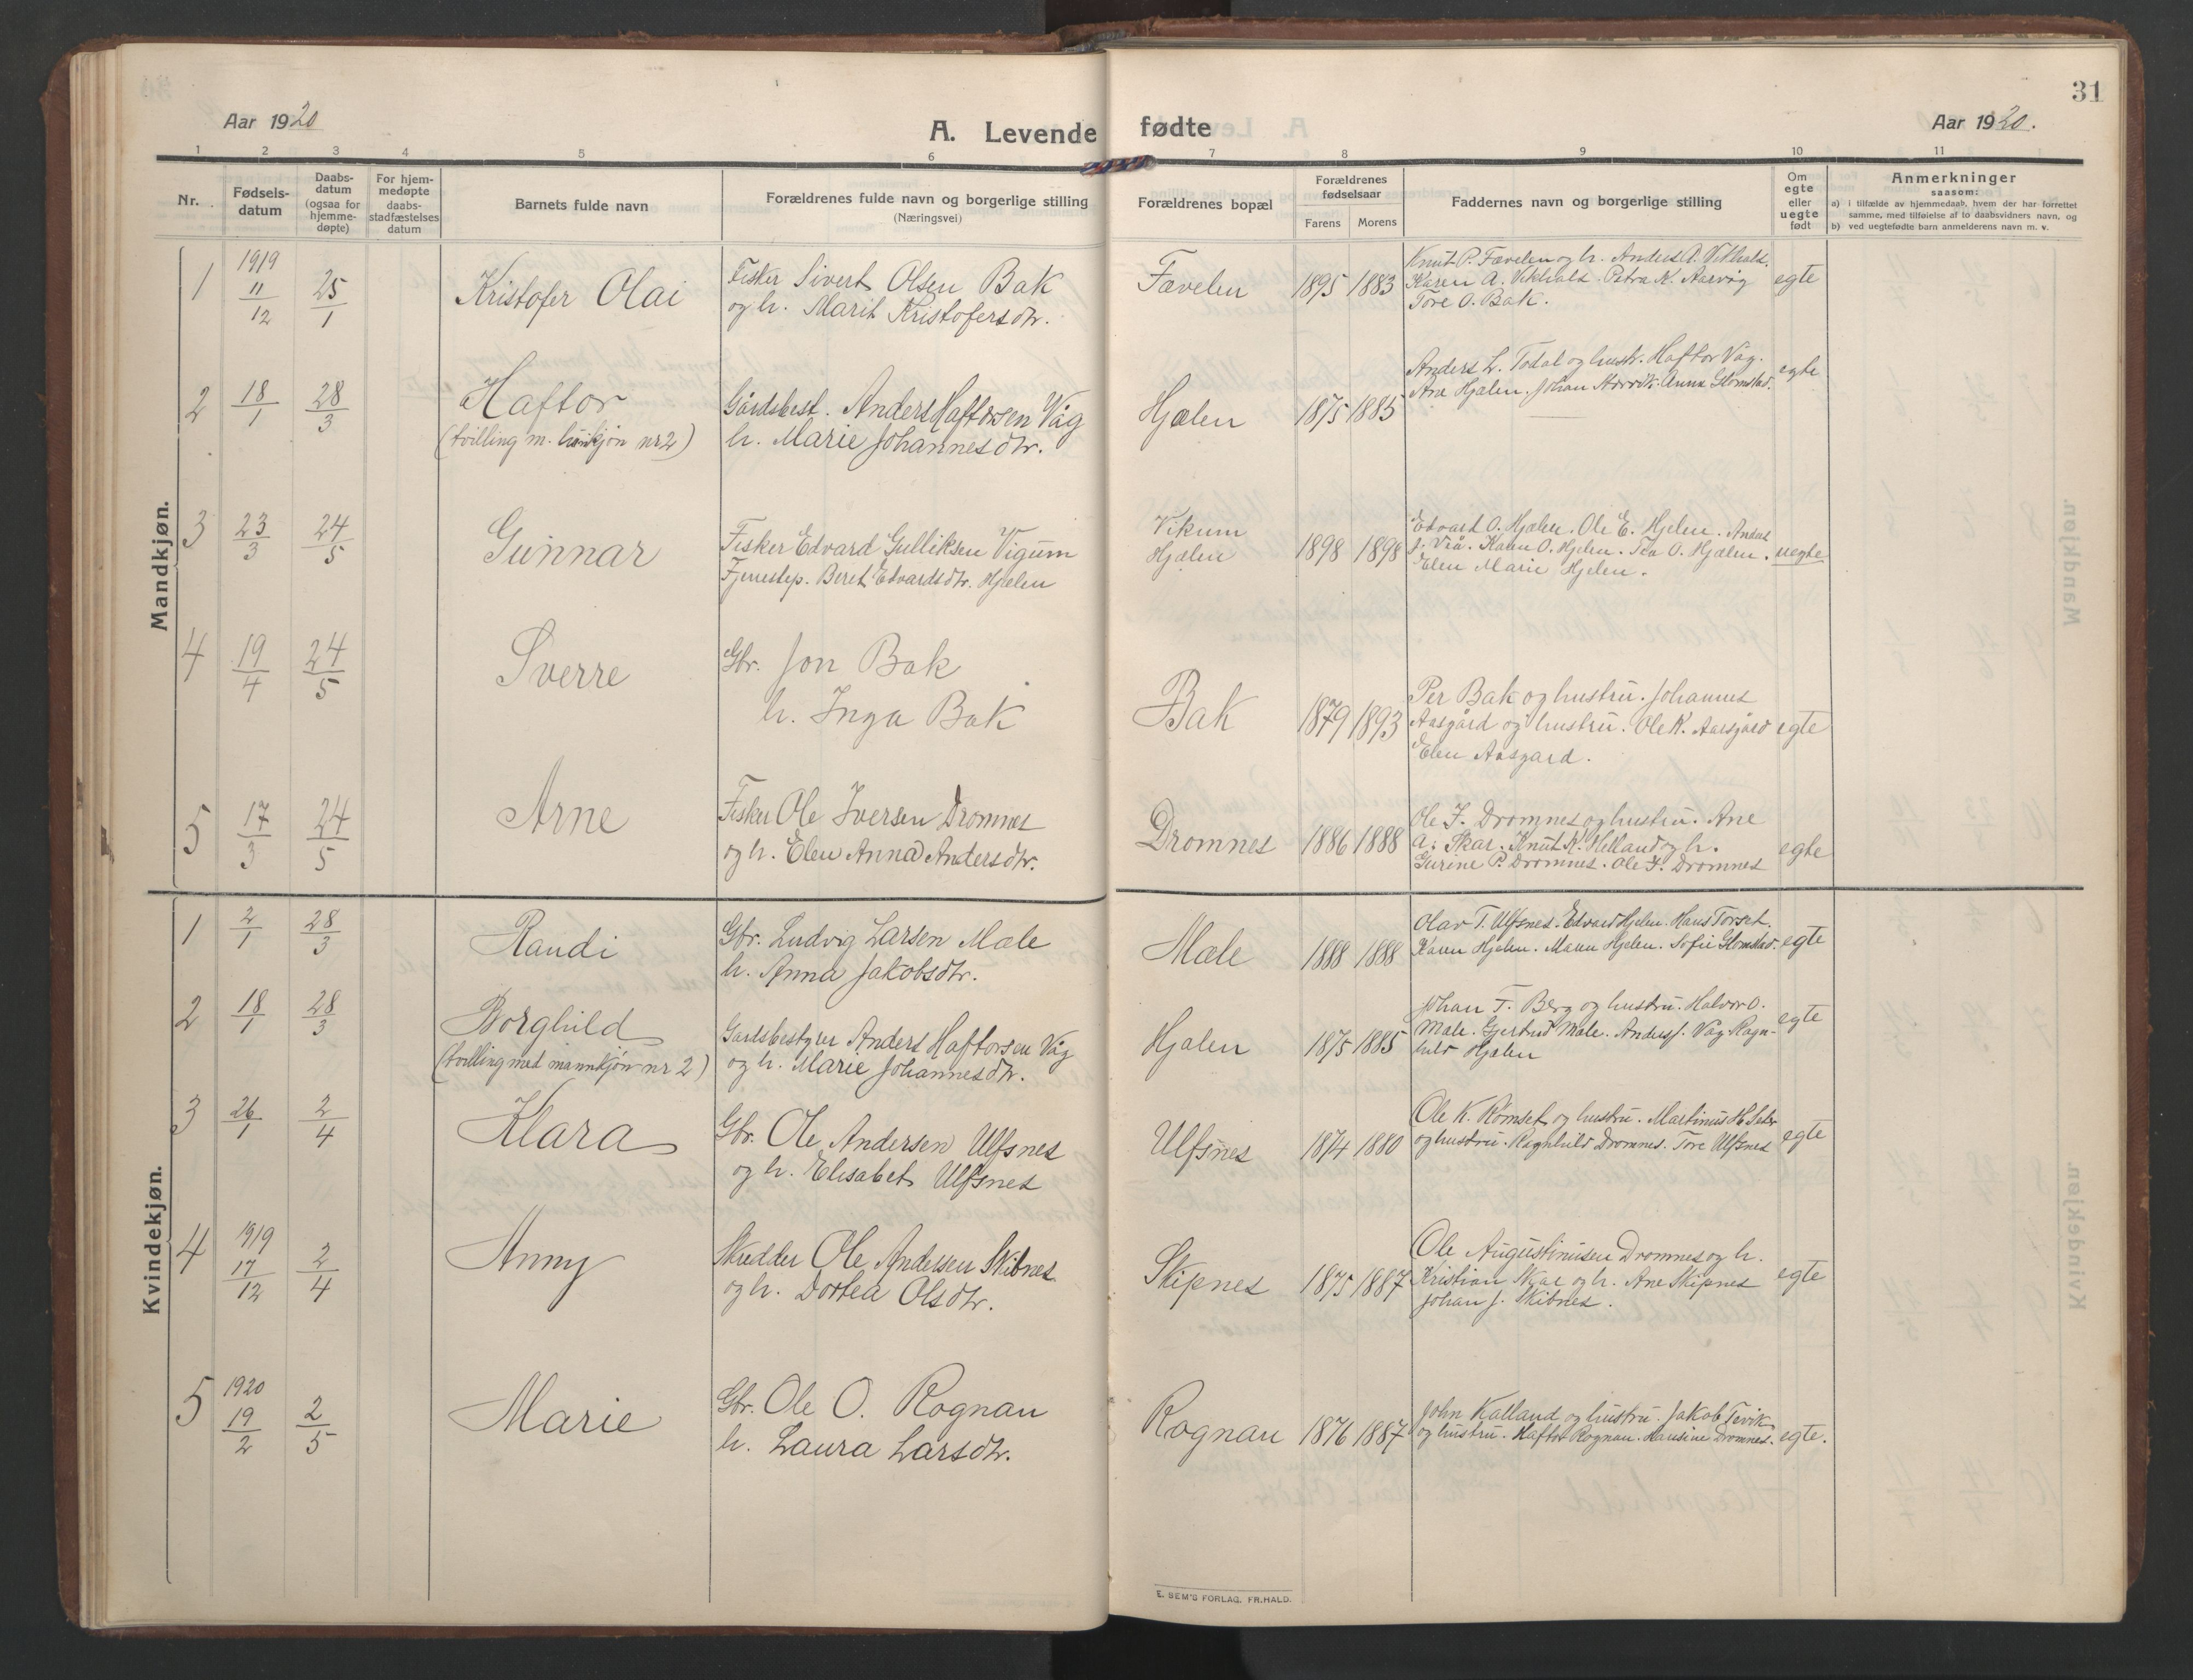 31
Aar 1920
A. Levende fødte
Aar 1920.
1 2 3 4 5 6 7 8 9 10 11
Nr.
Fødsels-
datum
Daabs-
datum
(ogsaa for
hjemme-
døpte)
For hjem-
medøpte
daabs-
stadfæstelses
datum
Barnets fulde navn
Forældrenes fulde navn og borgerlige stilling
(Næringsvei)
Forældrenes bopæl
Forældrenes
fødselsaar
Farens Morens
Faddernes navn og borgerlige stilling
Om
egte
eller
uegte
født
Anmerkninger
saasom:
a) i tilfælde av hjemmedaab, hvem der har forrettet
samme, med tilføielse af to daabsvidners navn, og
b) ved uegtefødte barn anmelderens navn m. v.
Mandkjøn.
1 1919 11/12 25/1 Kristofer Olai
Fisker Sivert Olsen Bak
og h. Marit Kristofersdtr.
Fævelen 1895 1883
Knut P. Fævelen og h. Anders A. Vikhals.
Karen A. Vikhals. Petra K. Aarvåg
Tore O. Bak.
egte
2 18/1 28/3 Haftor
(tvilling m. kvinkjøn nr 2)
Gårdsbest. Anders Haftorsen Våg
h. Marie Johannesdtr.
Hjælen 1875 1885
Anders L. Todal og hustr. Haftor Våg.
Ane Hjælen. Johan Aarvik. Anna Glomstad.
egte
3 23/3 24/5 Gunnar
Fisker Edvard Gulliksen Vigum
Tjenestep. Beret Edvardsdtr. Hjelen
Vikum
Hjælen
1898 1898
Edvard O. Hjelen. Ole E. Hjelen. Andas
J. Vrå. Karen O. Hjelen. Tea O. Hjælen.
Elen Marie Hjelen.
uegte
4 19/4 24/5 Sverre
Gbr. Jon Bak
h. Inga Bak
Bak 1879 1893
Per Bak og hustru. Johannes
Aasgård og hustru. Ole K. Aasgård
Elen Aasgard.
egte
5 17/3 24/5 Arne
Fisker Ole Iversen Dromnes
og h. Elen Anna Andersdtr.
Dromnes 1886 1888
Ole I. Dromnes og hustru. Ane
A. Skar. Knut K. Helland og h.
Gurine P. Dromnes. Ole I. Dromnes
egte
Kvindekjøn.
1 2/1 28/3 Randi
Gbr. Ludvig Larsen Mæle
h. Anna Jakobsdtr.
Mæle 1888 1888
Olav T. Ulfsnes. Edvard Hjelen. Hans Torset.
Karen Hjelen. Maren Hjelen. Sofie Glomstad.
egte
2 18/1 28/3 Borghild
(tvilling med mannkjøn nr 2)
Gardsbestyrer Anders Haftorsen Våg
og h. Marie Johannesdtr.
Hjælen 1875 1885
Johan T. Berg og hustru. Halvor O.
Mæle. Gjertrud Mæle. Anders J. Våg. Ragn-
hild Hjælen
egte
3 26/1 2/4 Klara
Gbr. Ole Andersen Ulfsnes
og h. Elisabet Ulfsnes
Ulfsnes 1874 1880
Ole K. Romset og hustru. Martinus H. Seter
og hustru. Ragnhild Dromnes. Tore Ulfsnes
egte
4 1919 17/12 2/4 Anny
Skredder Ole Andersen Skibnes
og h. Dortea Olsdtr.
Skipnes 1875 1887
Ole Augustinusen Dromnes og h.
Kristian Skar og h. Ane Skipnes
Johan J. Skibnes.
egte
5 1920 19/2 2/5 Marie
Gbr. Ole O. Rognan
h. Laura Larsdtr.
Rognan 1876 1887
John Kalland og hustru. Jakob Tevik
og hustru. Haftor Rognan. Hansine Dromnes.
egte.
E. SEM'S FORLAG. FR.HALD.